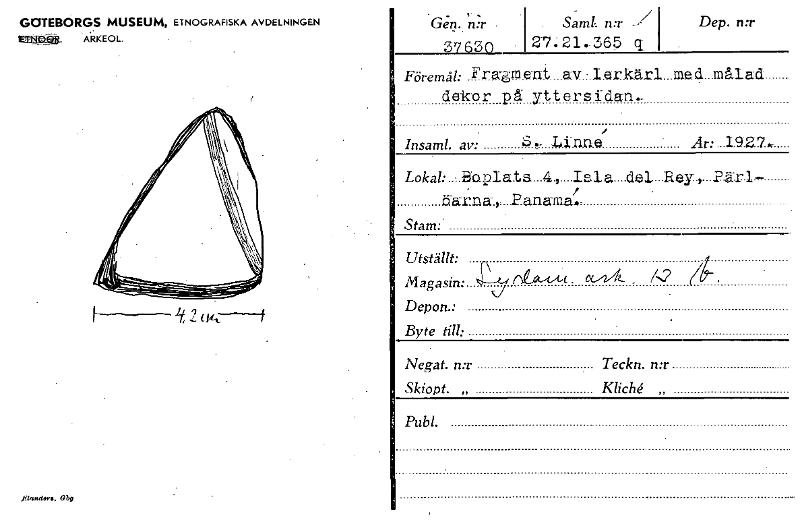 GÖTEBORGS MUSEUM, ETNOGRAFISKA AVDELNINGEN
ETNOGR. ARKEOL.
4,2 cm
Elanders, Gbg
Gen. n:r Saml. n:r Dep. n:r
37630 27.21.365 q
Föremål: Fragment av lerkärl med målad
dekor på yttersidan.
Insaml. av: S. Linné År: 1927.
Lokal: Boplats 4, Isla del Rey, Pärl-
öarna, Panamá.
Stam:
Utställt:
Magasin: Sydam ark.
Depon.:
Byte till:
Negat. n:r Teckn. n:r
Skiopt. „ Kliché „
Publ.